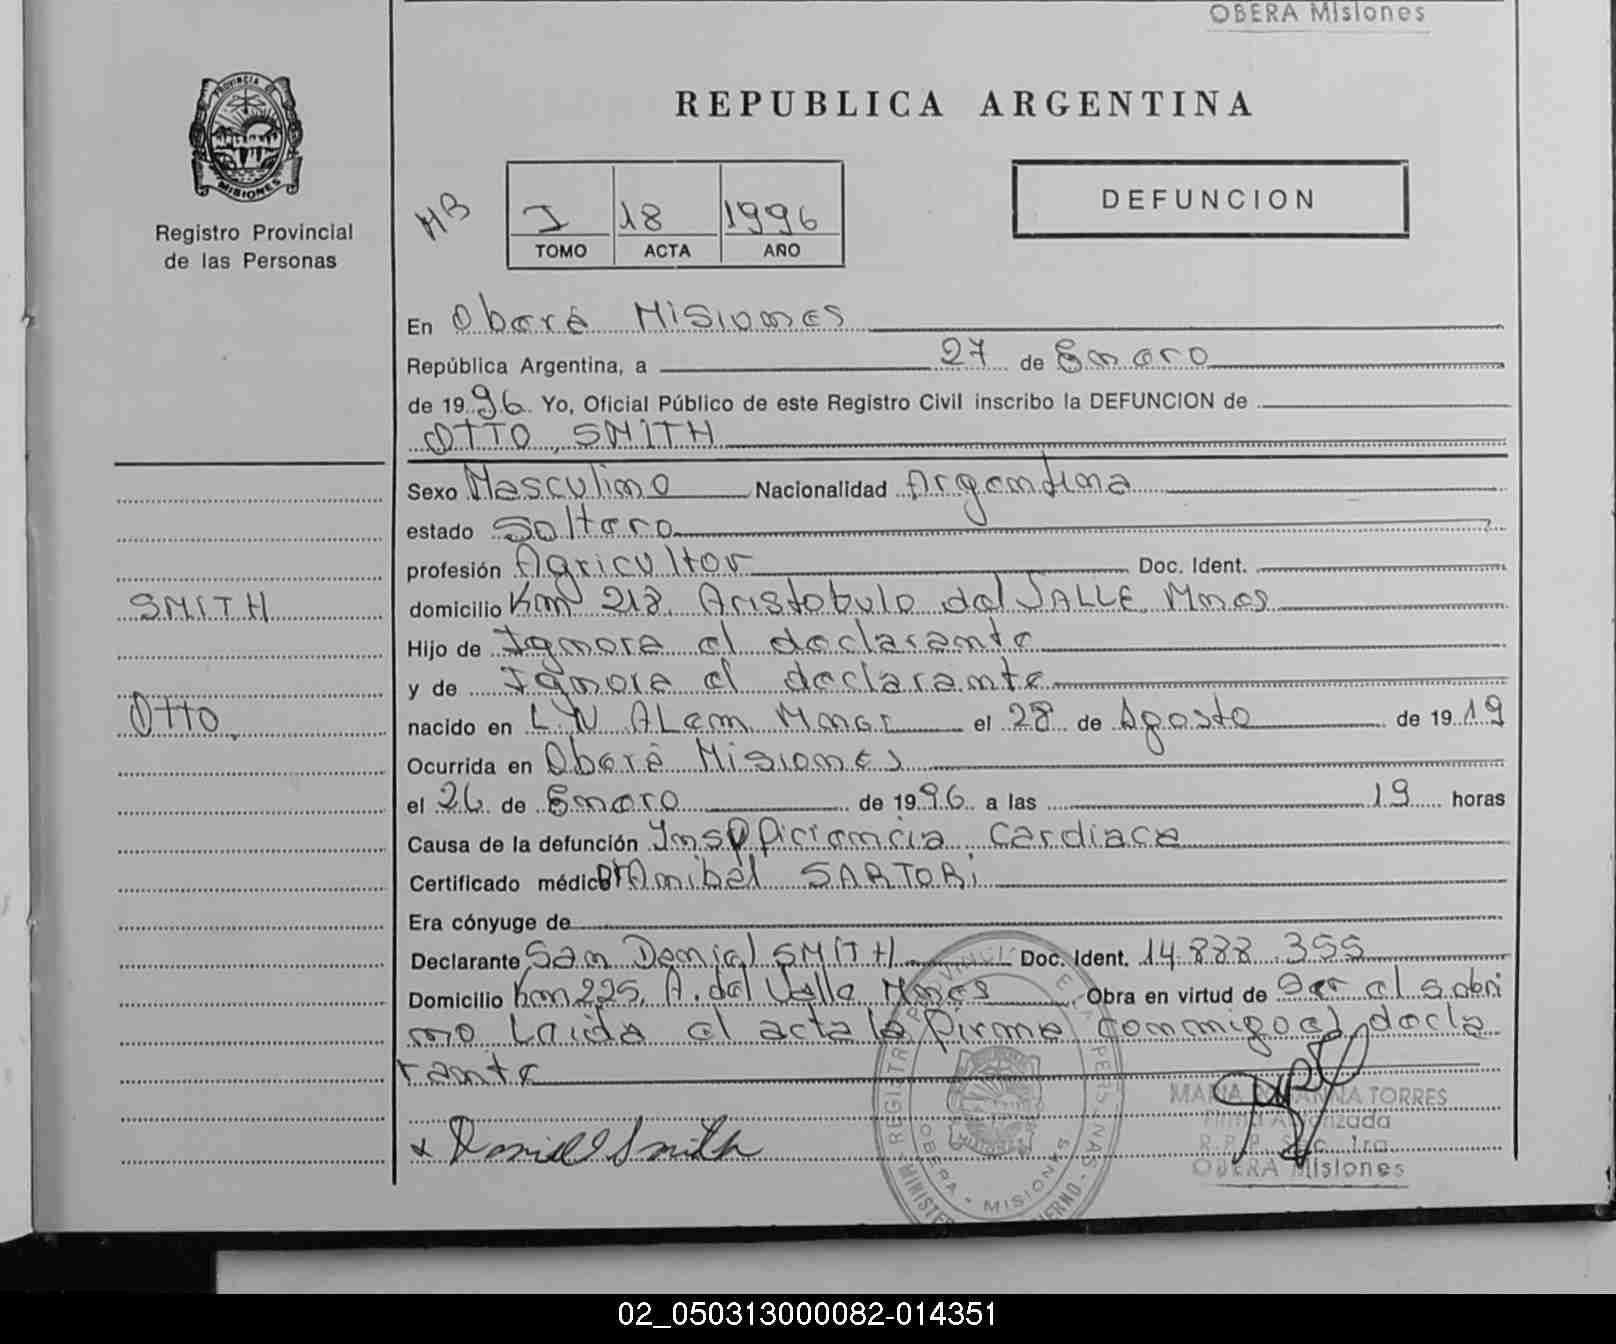 OBERA Misiones
PROVINCIA DE
MISIONES
Registro Provincial
de las Personas
REPUBLICA ARGENTINA
HB
I 18 1996
TOMO ACTA AÑO
DEFUNCION
En Oberá Misiones
República Argentina, a 27 de Enero
de 1996 Yo, Oficial Público de este Registro Civil inscribo la DEFUNCION de
OTTO, SMITH
Sexo Masculino Nacionalidad Argentina
estado Soltero
profesión Agricultor Doc. Ident.
SMITH
domicilio Km 218. Aristobulo del VALLE Mnes
Hijo de Ignora el declarante
y de Ignora el declarante
OTTO.
nacido en L.N ALem Mnes el 28 de Agosto de 1919
Ocurrida en Oberá Misiones
el 26 de Enero de 1996 a las 19 horas
Causa de la defunción Insuficiencia Cardiaca
Certificado médico Dr Anibal SARTORi
Era cónyuge de
Declarante San Daniel SMITH Doc. Ident. 14.888.355
Domicilio Km 225, A. del Valle Mnes Obra en virtud de Ser el sobri
no Leida el acta la firma conmigo el decla
rante
x Daniel Smith
REGISTRO PROVINCIAL DE LAS PERSONAS
OBERA - MISIONES
MARIA TORRES
Firma Autorizada
R.P.P. Sec. 1ra.
OBERA Misiones
02_050313000082-014351